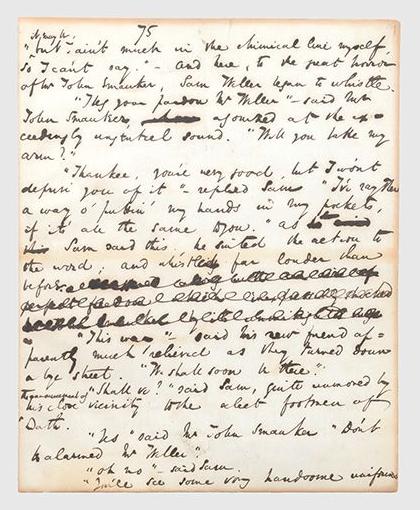 It may be. 75
"but I ain't much in the chimical line myself,
so I can't say." – And here, to the great horror
of Mr John Smauker, Sam Weller began to whistle.
"I beg your pardon Mr Weller" – said Mr
John Smauker, agonized at the ex-
ceedingly ungenteel sound. "Will you take my
arm?"
"Thankee, you're very good, but I won't
deprive you of it" – replied Sam "I've rayther
a way o' puttin' my hands in my pockets,
if it's all the same to you." As
Sam said this, he suited the action to
the word, and whistled far louder than
before.
"This way" – said his new friend ap-
parently much relieved as they turned down
a bye street. "We shall soon be there."
"Shall we?" said Sam, quite unmoved by
the announcement of
his close vicinity to the select footmen of
Bath.
"Yes" said Mr John Smauker "Don't
be alarmed Mr Weller."
"Oh no" – said Sam.
"You'll see some very handsome uniforms